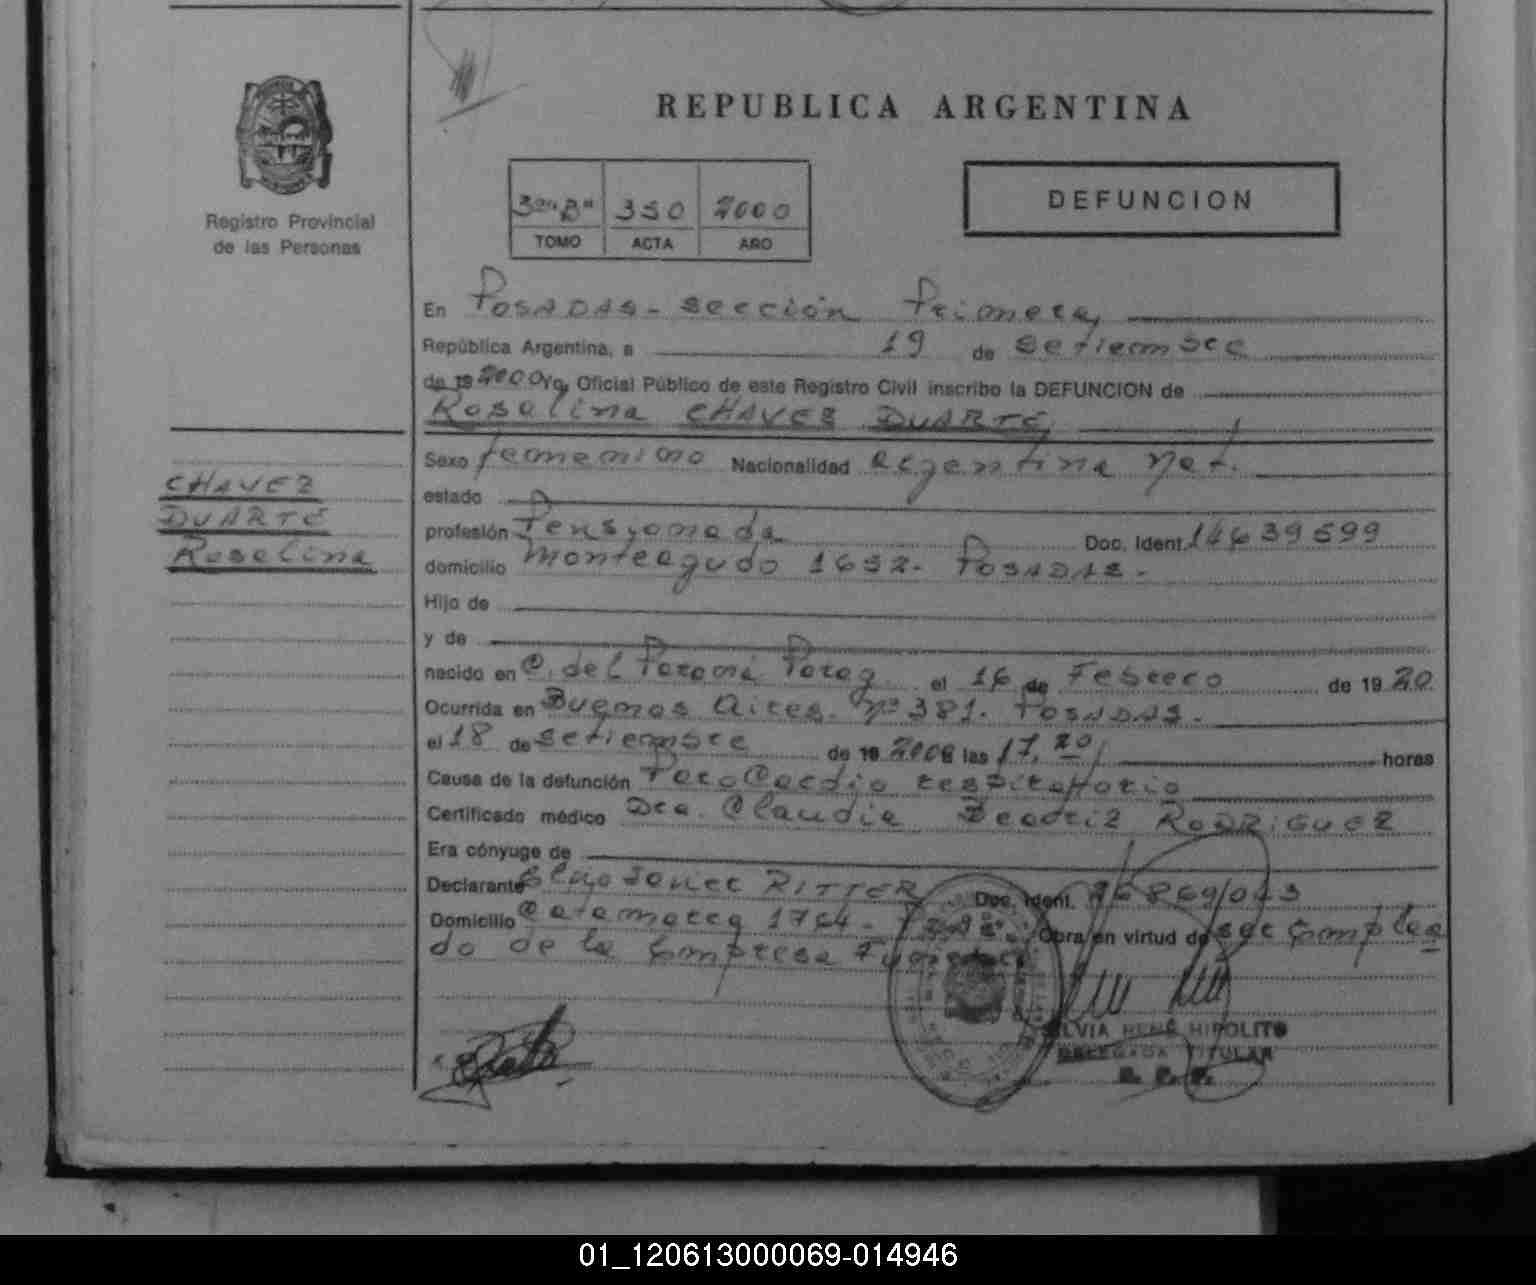 REPUBLICA ARGENTINA
Registro Provincial
de las Personas
350 2000
TOMO ACTA AÑO
DEFUNCION
En POSADAS - sección Primera
República Argentina, a 19 de setiembre
de 19 2000 Yo, Oficial Público de este Registro Civil inscribo la DEFUNCION de
Rosalina CHAVEZ DUARTE
CHAVEZ
DUARTE
Rosalina
Sexo femenino Nacionalidad argentina nat.
estado
profesión Pensionada Doc. Ident. 14639599
domicilio Monteagudo 1652. POSADAS.
Hijo de
y de
nacido en C. del Paraná Parag. el 16 de Febrero de 19 20
Ocurrida en Buenos Aires. Nº 381. POSADAS.
el 18 de setiembre de 19 2000 las 17,20 horas
Causa de la defunción Paro Cardio respiratorio
Certificado médico Dra. Claudia Beatriz RODRIGUEZ
Era cónyuge de
Declarante RITTER Doc. Ident.
Domicilio Catamarca 1764 - Obra en virtud de ser Emplea
do de la Empresa
SILVIA RENÉ HIPOLITO
DELEGADA TITULAR
R. P. P.
01_120613000069-014946